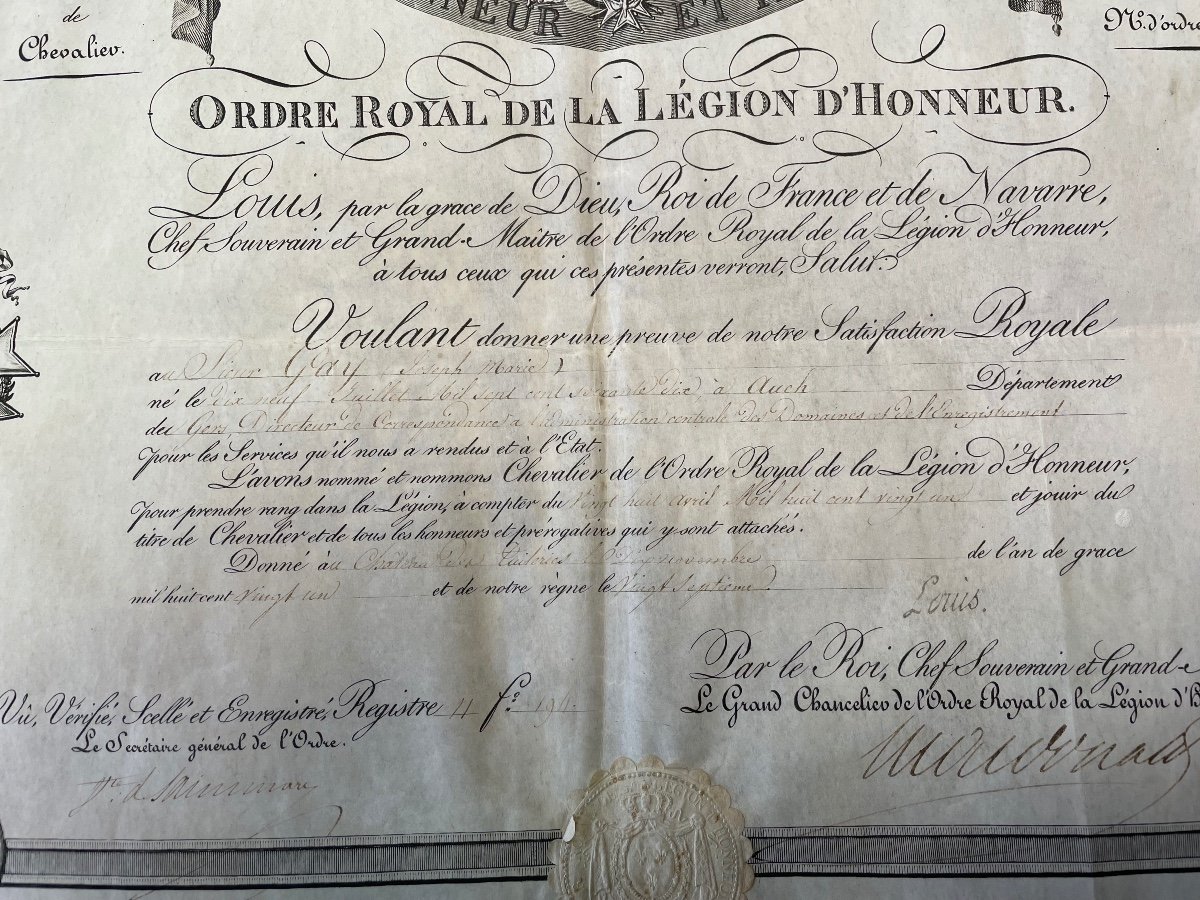 HONNEUR ET
de
Chevalier.
N.º d'ordre
ORDRE ROYAL DE LA LÉGION D'HONNEUR.
Louis, par la grace de Dieu, Roi de France et de Navarre,
Chef Souverain et Grand-Maître de l'Ordre Royal de la Légion d'Honneur,
à tous ceux qui ces présentes verront, Salut.
Voulant donner une preuve de notre Satisfaction Royale
au Sieur Gay (Joseph Marie)
né le dix neuf Juillet Mil sept cent soixante dix, à Auch Département
du Gers, Directeur de Correspondance à l'Administration centrale des Domaines et de l'Enregistrement
pour les Services qu'il nous a rendus et à l'Etat.
L'avons nommé et nommons Chevalier de l'Ordre Royal de la Légion d'Honneur,
pour prendre rang dans la Légion, à compter du Vingt huit avril Mil huit cent vingt un et jouir du
titre de Chevalier et de tous les honneurs et prérogatives qui y sont attachés.
Donné au Château des Tuileries le novembre de l'an de grace
mil huit cent vingt un et de notre règne le vingt septieme
Louis.
Par le Roi, Chef Souverain et Grand-
Le Grand Chancelier de l'Ordre Royal de la Légion d'H
Vû, Vérifié, Scellé et Enregistré, Registre 4 f.º
Le Secrétaire général de l'Ordre.
Macdonald